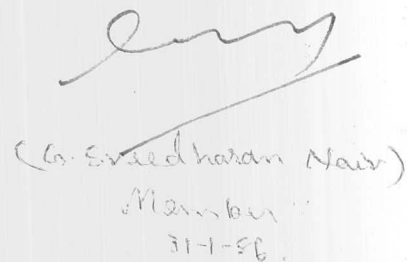 (G. Sreedharan Nair)
Member
31-1-86.